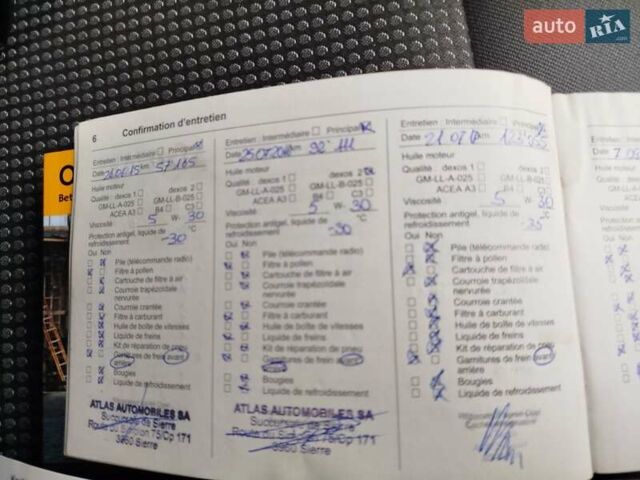 auto RIA
.com
6 Confirmation d'entretien
Entretien : Intermédiaire Principal
Date km 57'185
Huile moteur
Qualité : dexos 1 dexos 2
GM-LL-A-025 GM-LL-B-025
ACEA A3 B4 C3
Viscosité 5 W- 30
Protection antigel, liquide de
refroidissement -30 °C
Oui Non
Pile (télécommande radio)
Filtre à pollen
Cartouche de filtre à air
Courroie trapézoïdale
nervurée
Courroie crantée
Filtre à carburant
Huile de boîte de vitesses
Liquide de freins
Kit de réparation de pneu
Garnitures de frein avant
arrière
Bougies
Liquide de refroidissement
ATLAS AUTOMOBILES SA
Succursale de Sierre
Route du 75/Cp 171
3960 Sierre
Entretien : Intermédiaire Principal
Date km 92'111
Huile moteur
Qualité : dexos 1 dexos 2
GM-LL-A-025 GM-LL-B-025
ACEA A3 B4 C3
Viscosité 5 W- 30
Protection antigel, liquide de
refroidissement -30 °C
Oui Non
Pile (télécommande radio)
Filtre à pollen
Cartouche de filtre à air
Courroie trapézoïdale
nervurée
Courroie crantée
Filtre à carburant
Huile de boîte de vitesses
Liquide de freins
Kit de réparation de pneu
Garnitures de frein avant
arrière
Bougies
Liquide de refroidissement
ATLAS AUTOMOBILES SA
Succursale de Sierre
75/Cp 171
3960 Sierre
Entretien : Intermédiaire Principal
Date 21 07 km
Huile moteur
Qualité : dexos 1 dexos 2
GM-LL-A-025 GM-LL-B-025
ACEA A3 B4 C3
Viscosité 5 W- 30
Protection antigel, liquide de
refroidissement -35 °C
Oui Non
Pile (télécommande radio)
Filtre à pollen
Cartouche de filtre à air
Courroie trapézoïdale
nervurée
Courroie crantée
Filtre à carburant
Huile de boîte de vitesses
Liquide de freins
Kit de réparation de pneu
Garnitures de frein avant
arrière
Bougies
Liquide de refroidissement